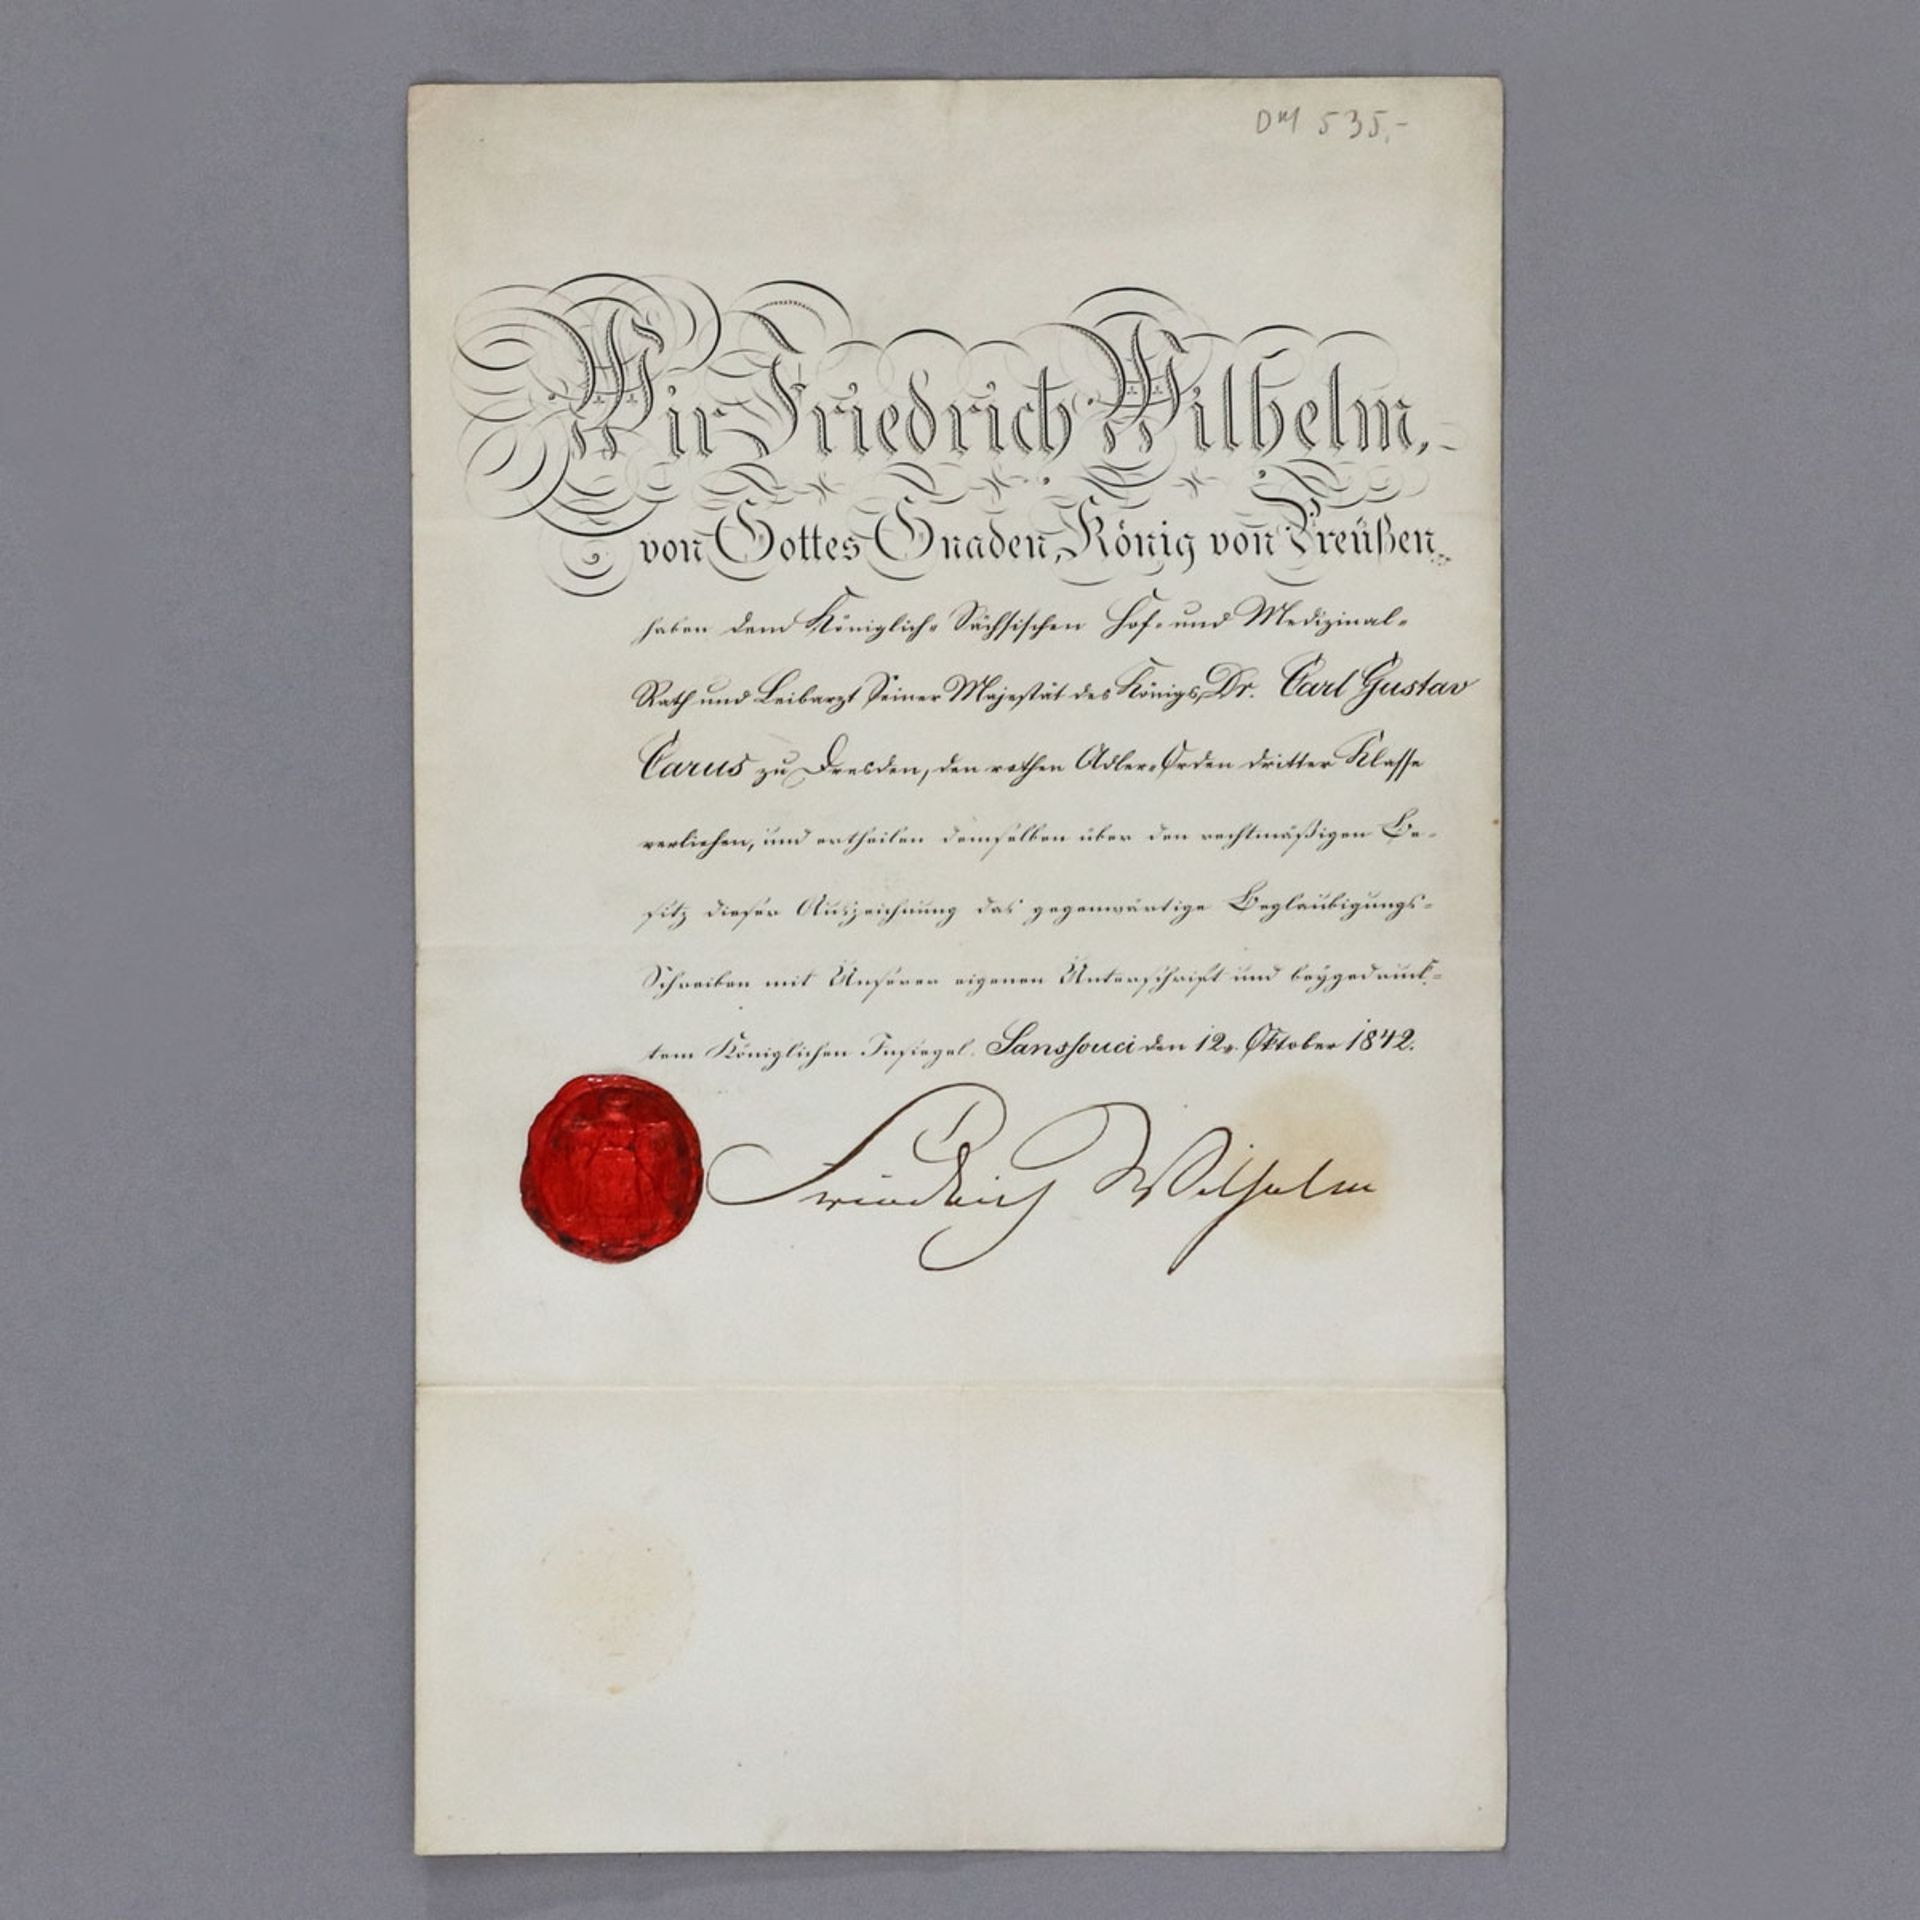 DM 535,-
Wir Friedrich Wilhelm,
von Gottes Gnaden, König von Preußen
haben dem Königlich-Sächsischen Hof- und Medizinal-
Rath und Leibarzt Seiner Majestät des Königs, Dr. Carl Gustav
Carus zu Dresden, den rothen Adler-Orden dritter Klasse
verliehen, und ertheilen demselben über den rechtmäßigen Be-
sitz dieser Auszeichnung das gegenwärtige Beglaubigungs-
Schreiben mit Unserer eigenen Unterschrift und beygedruck-
tem Königlichen Insiegel. Sanssouci den 12. Oktober 1842.
Friedrich Wilhelm